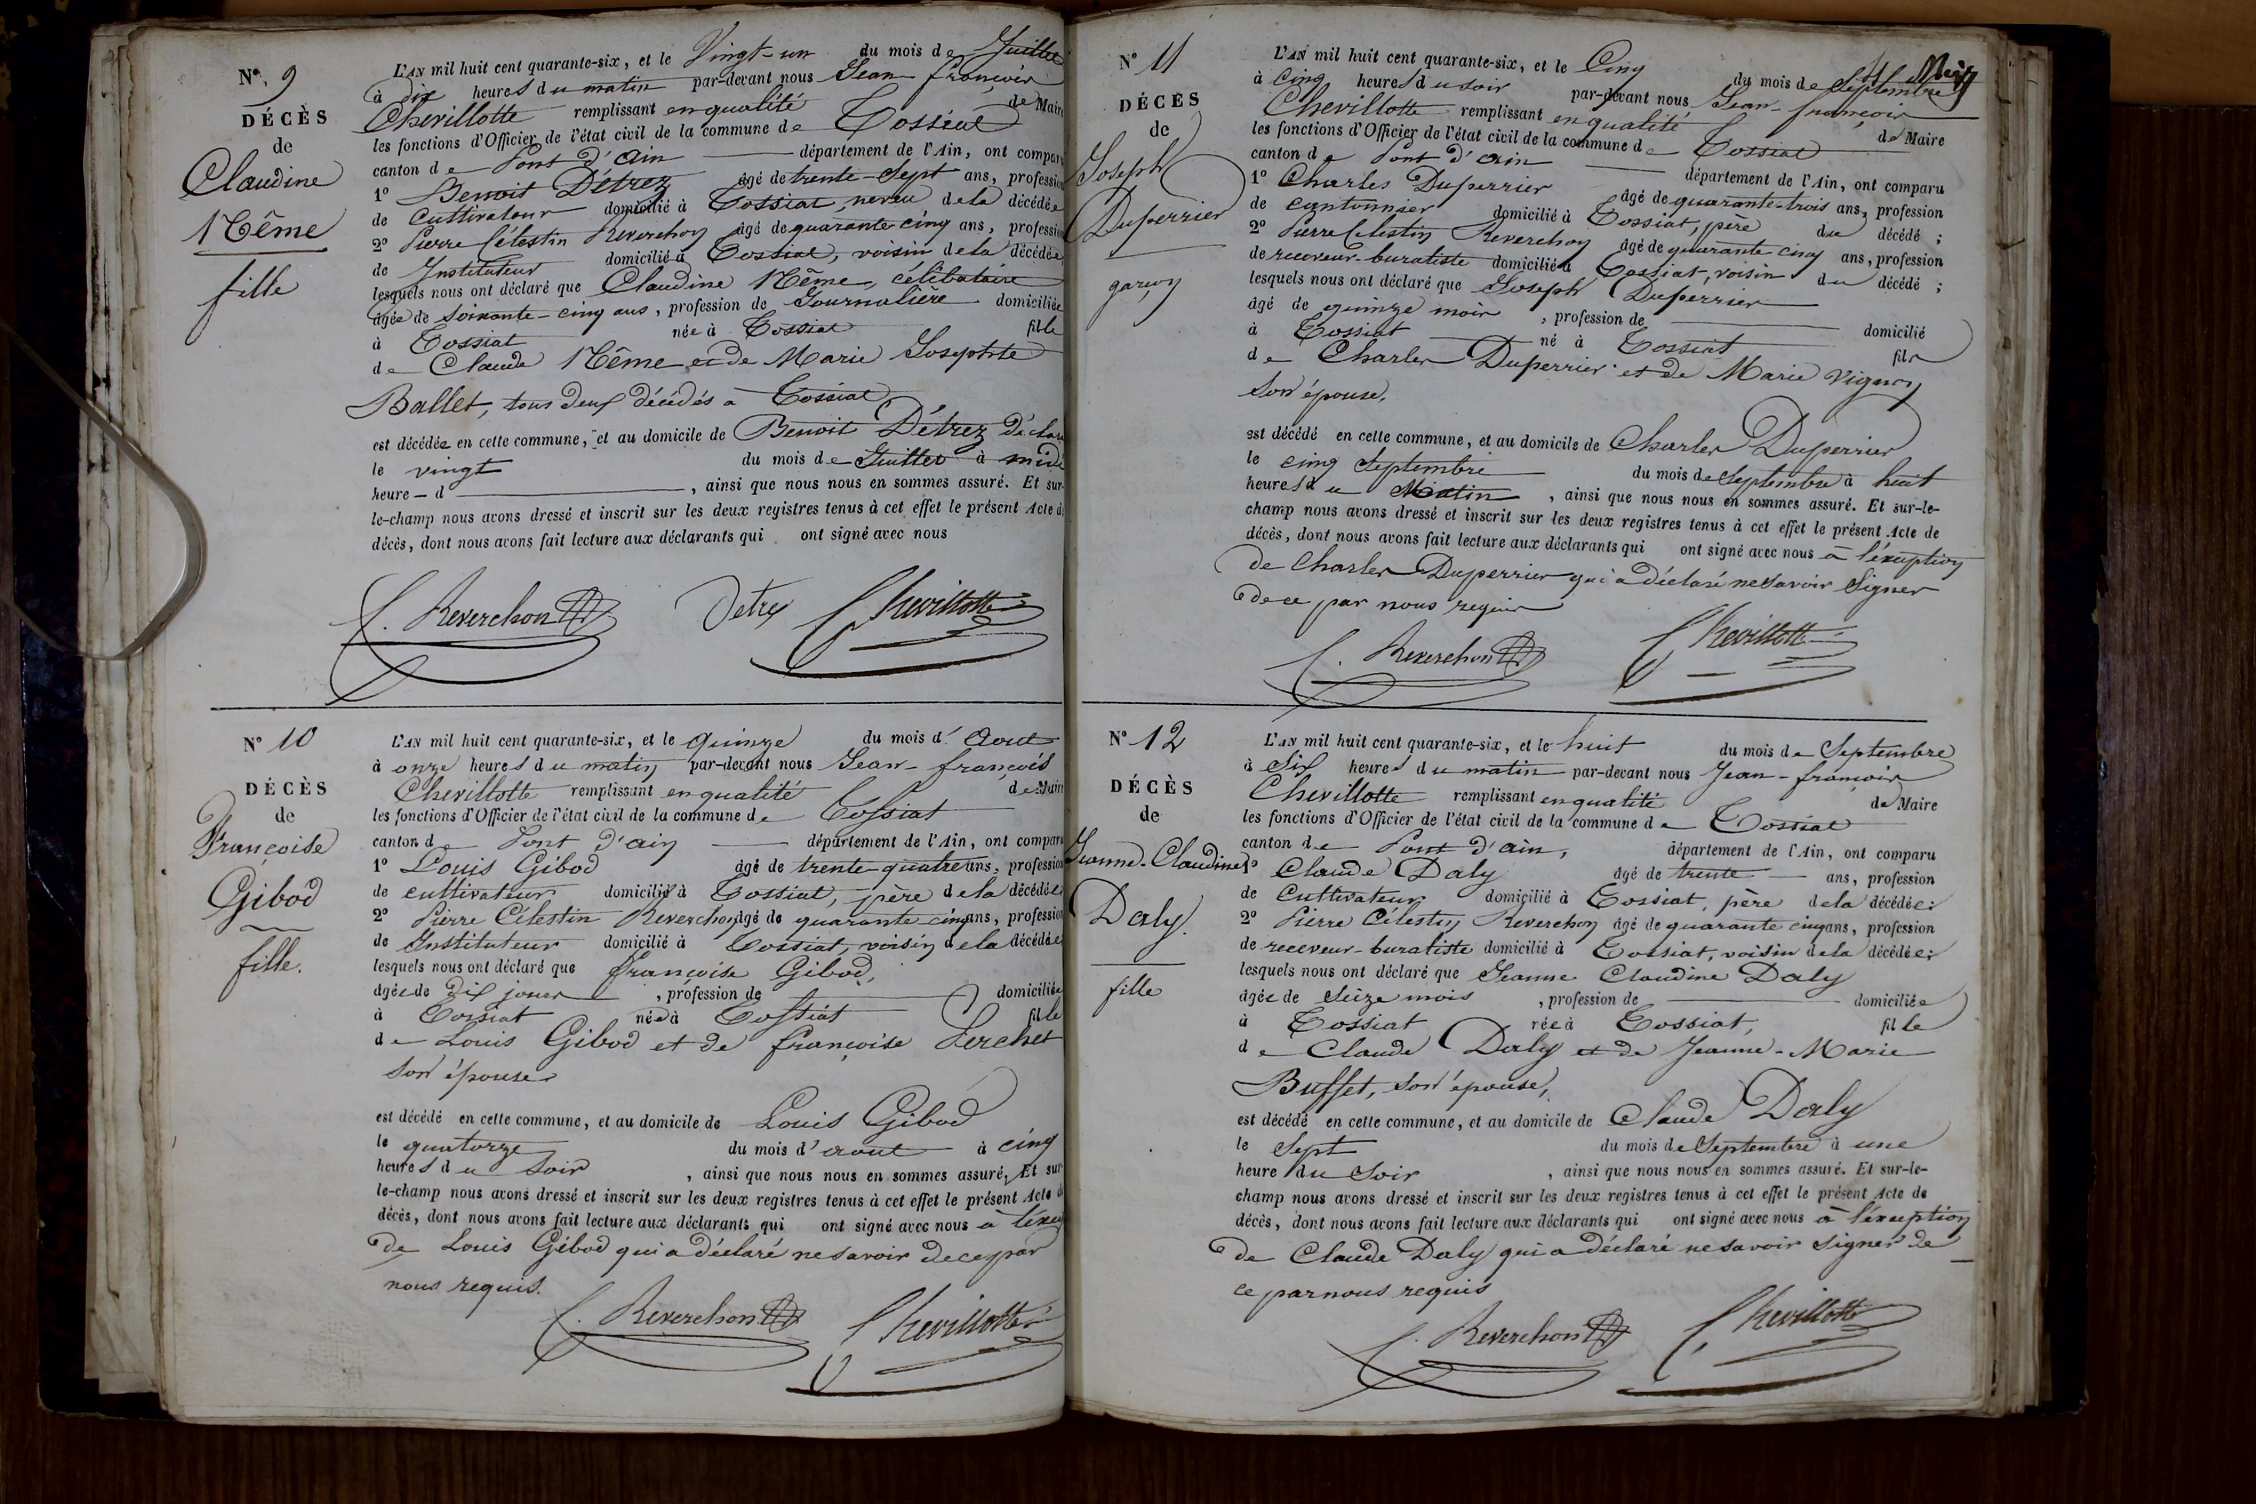 N° 9
DÉCÈS
de
Claudine
Nême
fille
L'AN mil huit cent quarante-six, et le Vingt-un du mois de Juillet
à dix heures du matin par-devant nous Jean françois
Chevillotte remplissant en qualité de Maire
les fonctions d'Officier de l'état civil de la commune de Tossiat
canton de Pont d'Ain département de l'Ain, ont comparu
1° Benoit Détrez âgé de trente-sept ans, profession
de cultivateur domicilié à Tossiat, neveu de la décédée
2° Pierre Célestin Reverchon âgé de quarante cinq ans, profession
de Instituteur domicilié à Tossiat, voisin de la décédée
lesquels nous ont déclaré que Claudine Nême, célibataire
âgée de soixante-cinq ans, profession de Journalière domiciliée
à Tossiat née à Tossiat fille
de Claude Nême et de Marie Josephte
Ballet, tous deux décédés à Tossiat
est décédée en cette commune, et au domicile de Benoit Détrez déclara
le vingt du mois de Juillet à midi
heure – d , ainsi que nous nous en sommes assuré. Et sur-
le-champ nous avons dressé et inscrit sur les deux registres tenus à cet effet le présent Acte d
décès, dont nous avons fait lecture aux déclarants qui ont signé avec nous
C. Reverchon Detrez Chevillotte
N° 10
DÉCÈS
de
Françoise
Gibod
fille.
L'AN mil huit cent quarante-six, et le quinze du mois d' Aout
à onze heures du matin par-devant nous Jean-françois
Chevillotte remplissant en qualité de Maire
les fonctions d'Officier de l'état civil de la commune de Tossiat
canton de Pont d'ain département de l'Ain, ont comparu
1° Louis Gibod âgé de trente-quatre ans, profession
de cultivateur domicilié à Tossiat, père de la décédée
2° Pierre Célestin Reverchon âgé de quarante cinq ans, profession
de Instituteur domicilié à Tossiat, voisin de la décédée
lesquels nous ont déclaré que françoise Gibod,
âgée de dix jours , profession de domiciliée
à Tossiat née à Tossiat fille
de Louis Gibod et de françoise Perchet
son épouse
est décédé en cette commune, et au domicile de Louis Gibod
le quatorze du mois d'aout à cinq
heures du soir , ainsi que nous nous en sommes assuré, Et sur
le-champ nous avons dressé et inscrit sur les deux registres tenus à cet effet le présent Acte d
décès, dont nous avons fait lecture aux déclarants qui ont signé avec nous à l'excep
de Louis Gibod qui a déclaré ne savoir de ce par
nous requis.
C. Reverchon Chevillotte
N° 11
DÉCÈS
de
Joseph
Duperrier
garçon
L'AN mil huit cent quarante-six, et le Cinq du mois de Septembre
à cinq heures du soir par-devant nous Jean-françois
Chevillotte remplissant en qualité de Maire
les fonctions d'Officier de l'état civil de la commune de Tossiat
canton de Pont d'ain département de l'Ain, ont comparu
1° Charles Duperrier âgé de quarante-trois ans, profession
de cantonnier domicilié à Tossiat, père du décédé ;
2° Pierre Celestin Reverchon âgé de quarante cinq ans, profession
de receveur-buraliste domicilié à Tossiat, voisin du décédé ;
lesquels nous ont déclaré que Joseph Duperrier
âgé de quinze mois , profession de domicilié
à Tossiat né à Tossiat fils
de Charles Duperrier et de Marie Vignon
son épouse,
est décédé en cette commune, et au domicile de Charles Duperrier
le cinq Septembre du mois de Septembre à huit
heures du Matin , ainsi que nous nous en sommes assuré. Et sur-le-
champ nous avons dressé et inscrit sur les deux registres tenus à cet effet le présent Acte de
décès, dont nous avons fait lecture aux déclarants qui ont signé avec nous à l'exception
de Charles Duperrier qui a déclaré ne savoir Signer
de ce par nous requis
C. Reverchon Chevillotte
N° 12
DÉCÈS
de
Jeanne-Claudine
Daly.
fille
L'AN mil huit cent quarante-six, et le huit du mois de Septembre
à six heures du matin par-devant nous Jean-françois
Chevillotte remplissant en qualité de Maire
les fonctions d'Officier de l'état civil de la commune de Tossiat
canton de Pont d'ain, département de l'Ain, ont comparu
1° Claude Daly âgé de trente ans, profession
de Cultivateur domicilié à Tossiat, père de la décédée;
2° Pierre Célestin Reverchon âgé de quarante cinq ans, profession
de receveur-buraliste domicilié à Tossiat, voisin de la décédée;
lesquels nous ont déclaré que Jeanne Claudine Daly
âgée de Seize mois , profession de domiciliée
à Tossiat née à Tossiat, fille
de Claude Daly et de Jeanne-Marie
Buffet, son épouse,
est décédé en cette commune, et au domicile de Claude Daly
le Sept du mois de Septembre à une
heure du Soir , ainsi que nous nous en sommes assuré. Et sur-le-
champ nous avons dressé et inscrit sur les deux registres tenus à cet effet le présent Acte de
décès, dont nous avons fait lecture aux déclarants qui ont signé avec nous à l'exception
de Claude Daly qui a déclaré ne savoir signer de
ce par nous requis
C. Reverchon Chevillotte